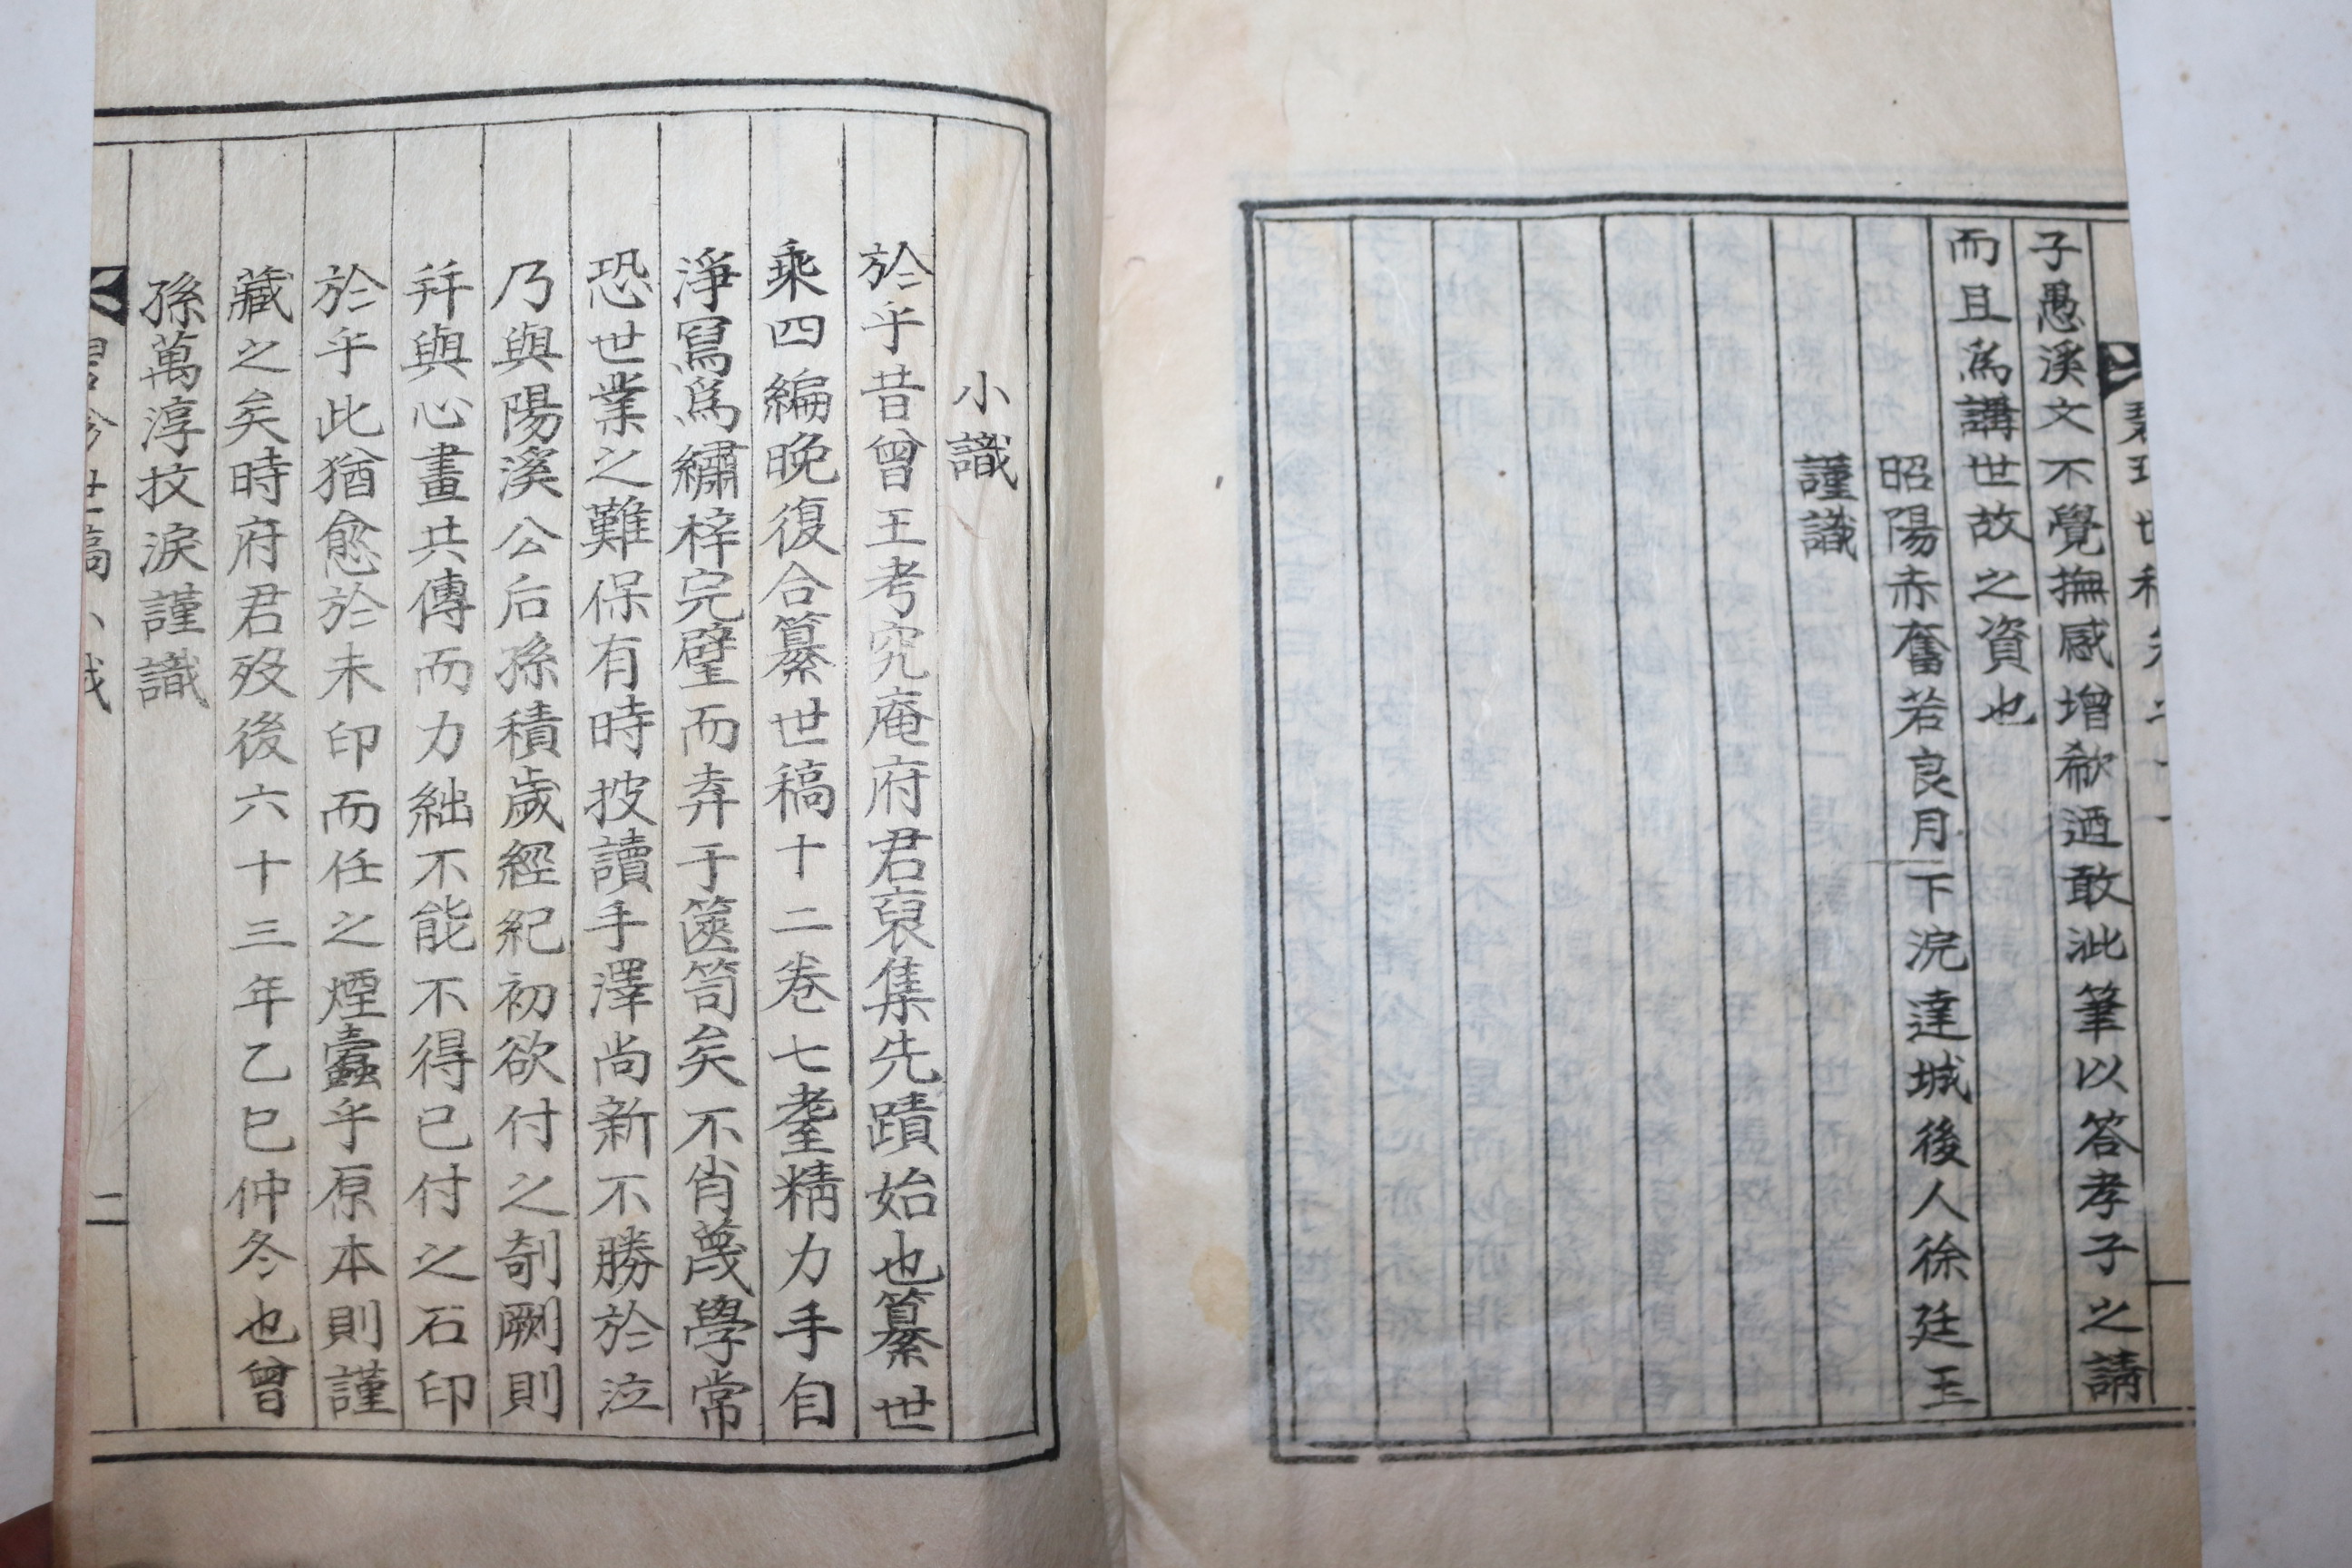 子愚溪文不覺撫感增欷迺敢泚筆以答孝子之請
而且爲講世故之資也
昭陽赤奮若良月下浣達城後人徐廷玉
謹識
小識
於乎昔曾王考究庵府君裒集先蹟始也纂世
乘四編晚復合纂世稿十二卷七耋精力手自
淨寫爲繡梓完璧而弆于篋笥矣不肖蔑學常
恐世業之難保有時披讀手澤尚新不勝於泣
乃與陽溪公后孫積歲經紀初欲付之剞劂則
幷與心畫共傳而力絀不能不得已付之石印
於乎此猶愈於未印而任之煙蠹乎原本則謹
藏之矣時府君歿後六十三年乙巳仲冬也曾
孫萬淳抆淚謹識
二